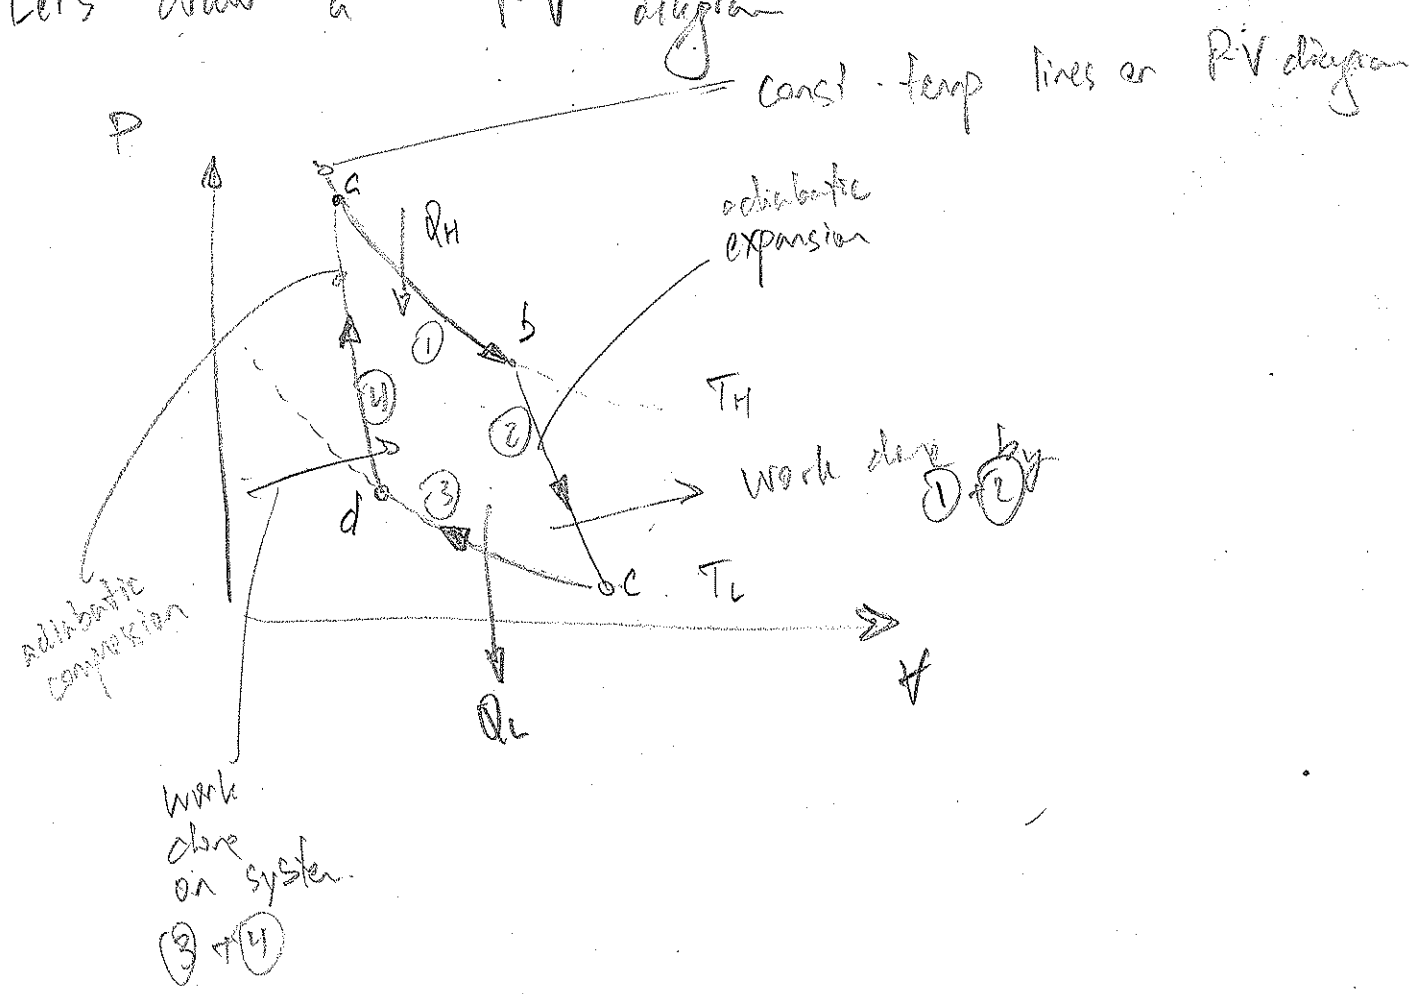 Lets draw a P-V diagram
const. temp lines on P-V diagram
P
a
QH
adiabatic
expansion
b
①
TH
②
④
work done by
① + ②
③
d
c
TL
adiabatic
compression
V
QL
work
done
on system.
③ + ④